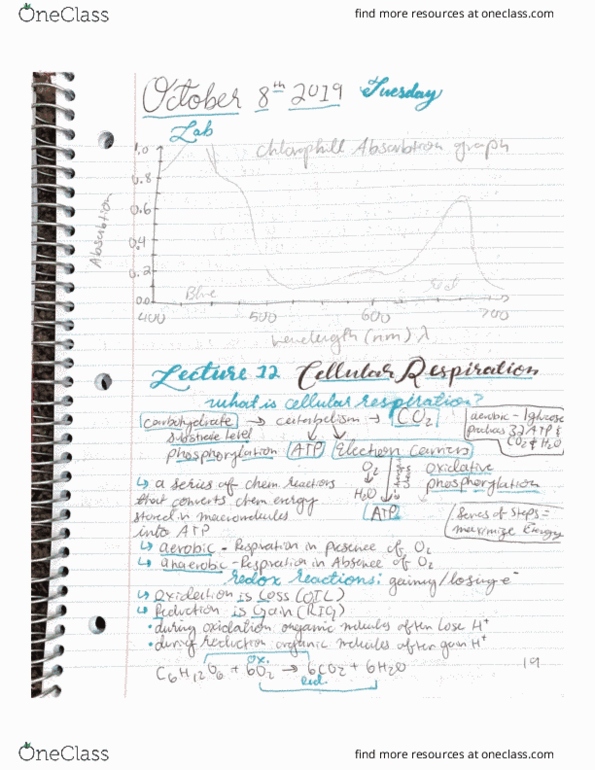 OneClass
find more resources at oneclass.com
October 8th 2019 Tuesday
Lab
chlorophill Absorbtion graph
1.0
0.8
0.6
0.4
0.2
0.0
Absorbtion
Blue
Red
400 500 600 700
wavelength (nm) λ
Lecture 12 Cellular Respiration
what is cellular respiration?
carbohydrate → catabolism → CO2
aerobic - 1 glucose
produces 32 ATP &
CO2 & H2O
substrate level
phosphorylation ATP Electron carriers
O2
H2O
oxidative
phosphorylation
ATP
↳ a series of chem reactions
that converts chem energy
stored in macromolecules
into ATP
Series of steps =
maximize Energy
↳ aerobic - Respiration in presence of O2
↳ anaerobic - Respiration in Absence of O2
redox reactions: gaining/losing e-
↳ Oxidation is Loss (OIL)
↳ Reduction is Gain (RIG)
• during oxidation organic molecules often lose H+
• during reduction organic molecules often gain H+
ox.
C6H12O6 + 6O2 → 6CO2 + 6H2O
red.
19
OneClass
find more resources at oneclass.com